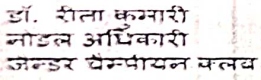 डॉ. रीता कुमारी
नोडल अधिकारी
जेन्डर चैम्पीयन क्लब